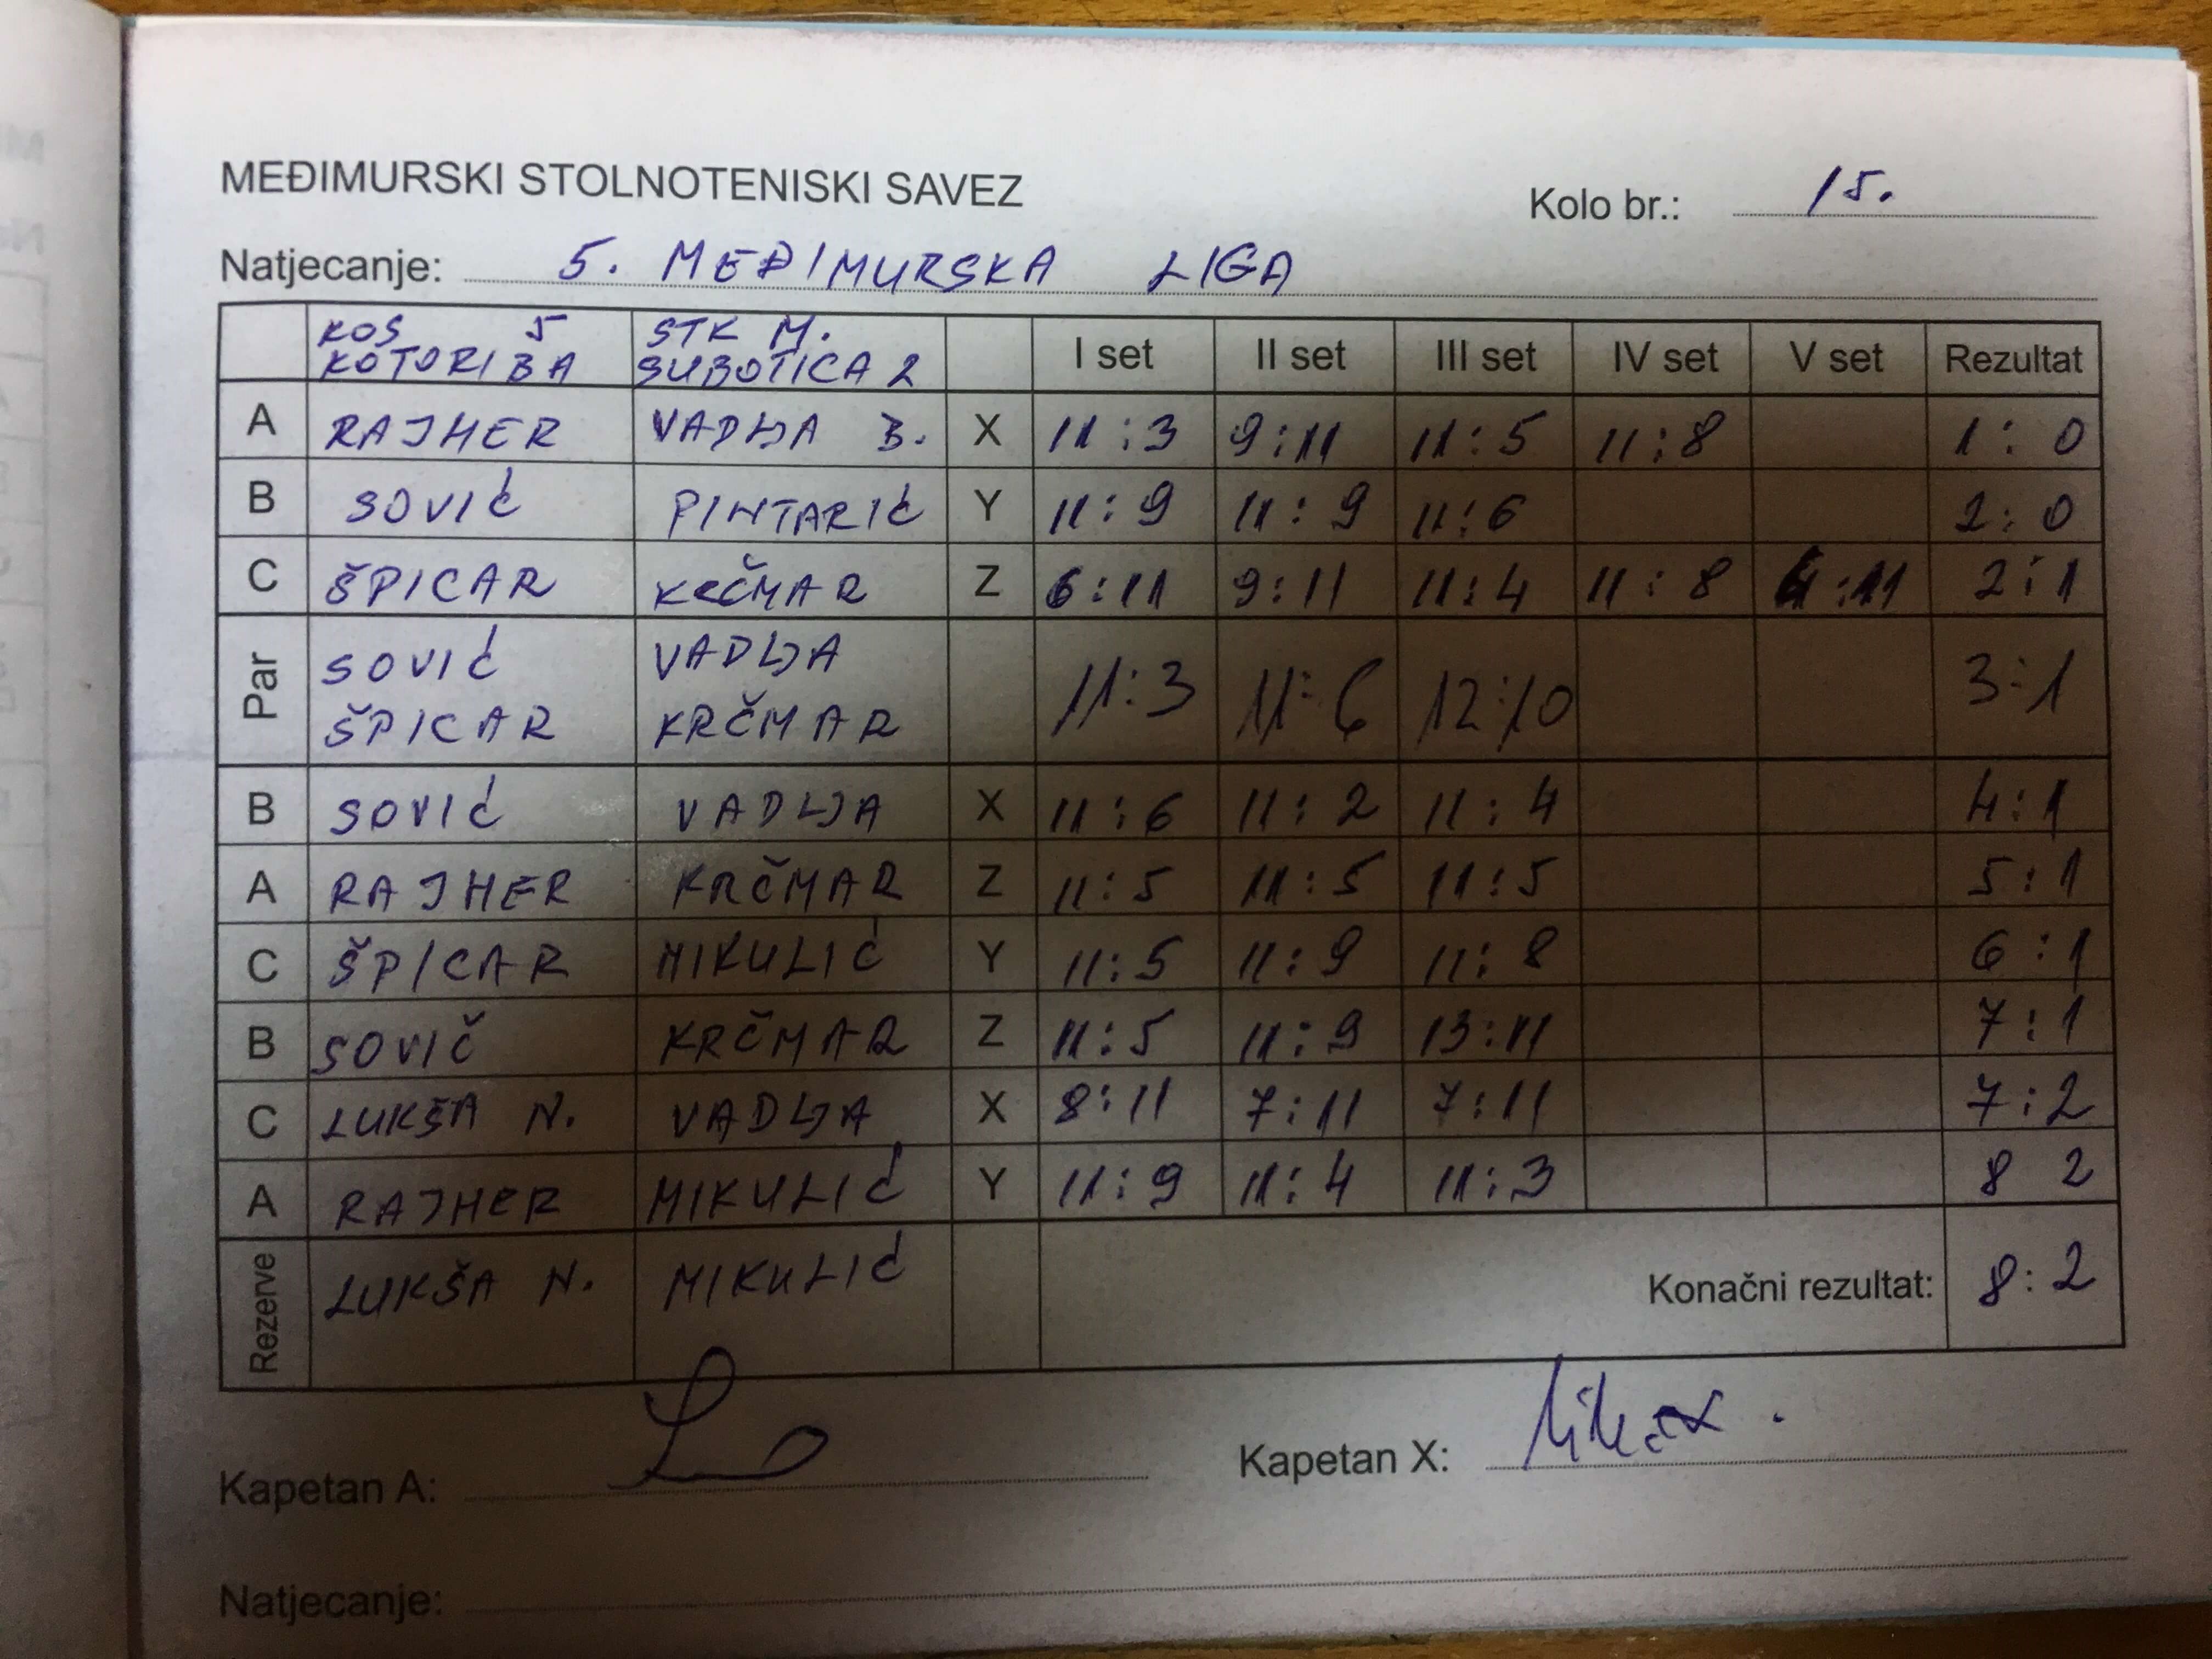 MEĐIMURSKI STOLNOTENISKI SAVEZ
Kolo br.: 15.
Natjecanje: 5. MEĐIMURSKA LIGA
KOS 5 KOTORIBA STK M. SUBOTICA 2 I set II set III set IV set V set Rezultat
A RAJHER VADLJA B. X 11:3 9:11 11:5 11:8 1:0
B SOVIĆ PINTARIĆ Y 11:9 11:9 11:6 2:0
C ŠPICAR KRČMAR Z 6:11 9:11 11:4 11:8 :11 2:1
Par SOVIĆ ŠPICAR VADLJA KRČMAR 11:3 11:6 12:10 3:1
B SOVIĆ VADLJA X 11:6 11:2 11:4 4:1
A RAJHER KRČMAR Z 11:5 11:5 11:5 5:1
C ŠPICAR MIKULIĆ Y 11:5 11:9 11:8 6:1
B SOVIČ KRČMAR Z 11:5 11:9 13:11 7:1
C LUKŠA N. VADLJA X 8:11 7:11 7:11 7:2
A RAJHER MIKULIĆ Y 11:9 11:4 11:3 8 2
Rezerve LUKŠA N. MIKULIĆ Konačni rezultat: 8:2
Kapetan A: Kapetan X:
Natjecanje: